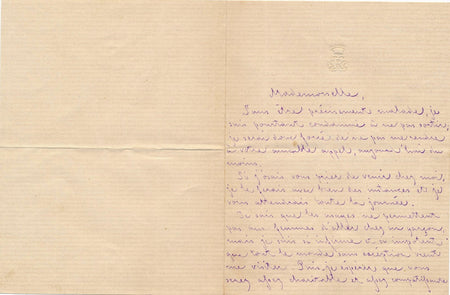 Mademoiselle,
Sans être précisément malade, je
suis pourtant condamné à ne pas sortir,
je serai donc forcé de ne pas me rendre
à votre aimable appel, aujourd'hui du
moins.
Si j'osais vous prier de venir chez moi,
je le ferais avec bien des instances et je
vous attendrais toute la journée.
Je sais que les usages ne permettent
pas aux femmes d'aller chez un garçon,
mais je suis si infirme et si
que tout le monde sans exception vient
me visiter. Puis, j'espère que vous
serez assez charitable et assez compatissante